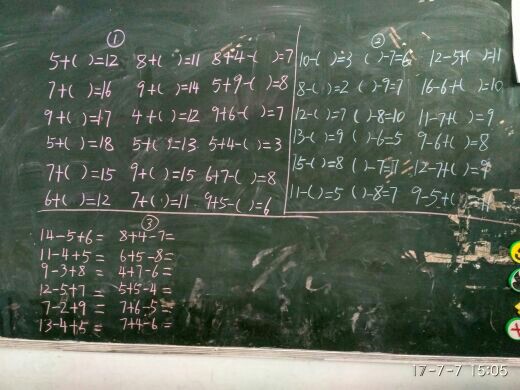 ①
5+( )=12 8+( )=11 8+4-( )=7
7+( )=16 9+( )=14 5+9-( )=8
9+( )=17 4+( )=12 9+6-( )=7
5+( )=18 5+( )=13 5+4-( )=3
7+( )=15 9+( )=15 6+7-( )=8
6+( )=12 7+( )=11 9+5-( )=6
②
10-( )=3 ( )-7=6 12-5+( )=11
8-( )=2 ( )-9=7 16-6+( )=10
12-( )=7 ( )-8=10 11-7+( )=9
13-( )=9 ( )-6=5 9-6+( )=8
15-( )=8 ( )-7=7 12-7+( )=9
11-( )=5 ( )-8=7 9-5+( )=11
③
14-5+6= 8+4-7=
11-4+5= 6+5-8=
9-3+8= 4+7-6=
12-5+7= 5+5-4=
7-2+9= 7+6-5=
13-4+5= 7+4-6=
17-7-7 15:05